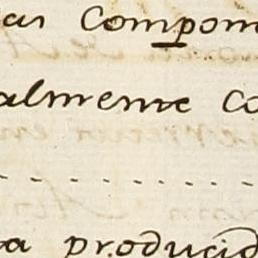 as Compon
almente co
a producid